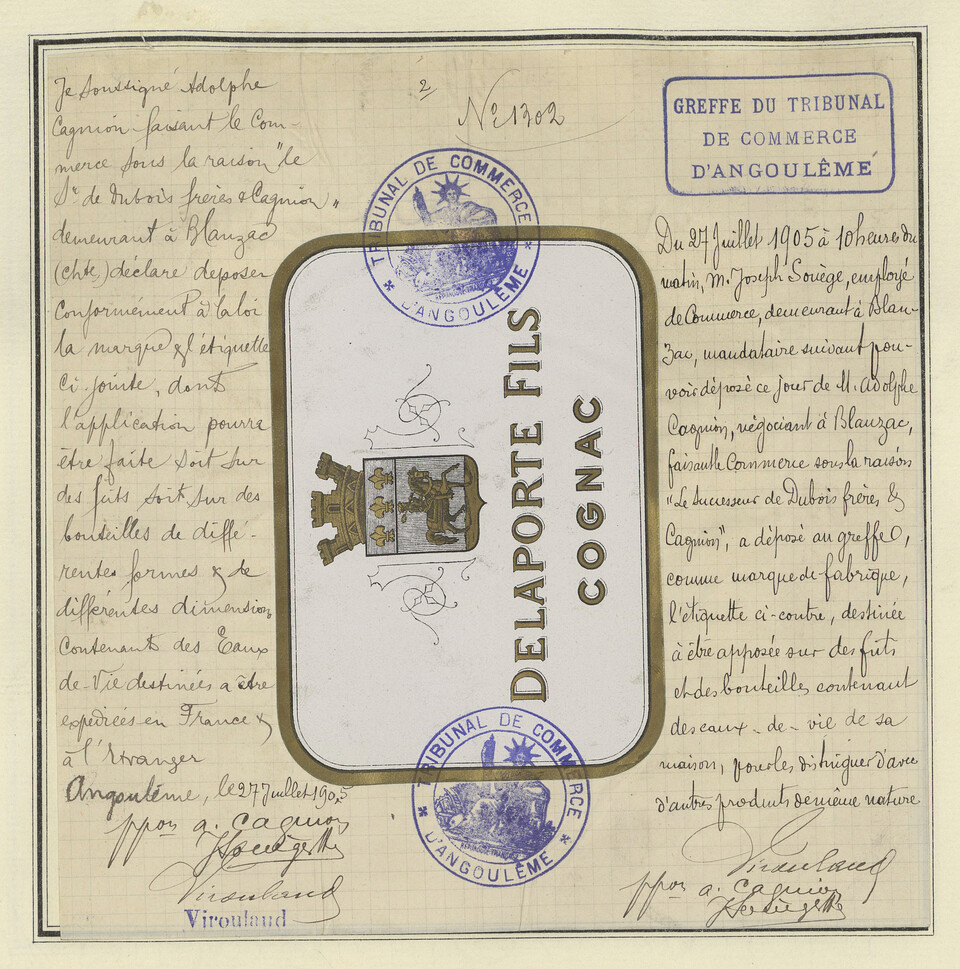 Je soussigné Adolphe
Cagnion faisant le Com-
merce sous la raison "le
Sr de Dubois frères & Cagnion"
demeurant à Blanzac
(chte,) déclare deposer
Conformément à la loi
la marque & l'étiquette
Ci-jointe, dont
l'application pourra
être faite soit sur
des fûts soit sur des
bouteilles de diffé-
rentes formes & de
différentes dimensions
Contenant des Eaux
de-Vie destinées a être
expediées en France &
à l'Etranger
Angoulême, le 27 Juillet 1905
ppon a. Cagnion
Virouland
Virouland
2
No 1302
TRIBUNAL DE COMMERCE
D'ANGOULÊME
DELAPORTE FILS
COGNAC
TRIBUNAL DE COMMERCE
D'ANGOULÊME
GREFFE DU TRIBUNAL
DE COMMERCE
D'ANGOULÊME
Du 27 Juillet 1905 à 10 heures du
matin, M. Joseph Souège, employé
de Commerce, demeurant à Blan-
zac, mandataire suivant pou-
voir déposé ce jour de M. Adolphe
Cagnion, négociant à Blanzac,
faisant le Commerce sous la raison
"Le Successeur de Dubois frères &
Cagnion", a déposé au greffe,
comme marque de fabrique,
l'étiquette ci-contre, destinée
à être apposée sur des fûts
et des bouteilles contenant
des eaux-de-vie de sa
maison, pour les distinguer d'avec
d'autres produits de même nature
Virouland
ppon a. Cagnion